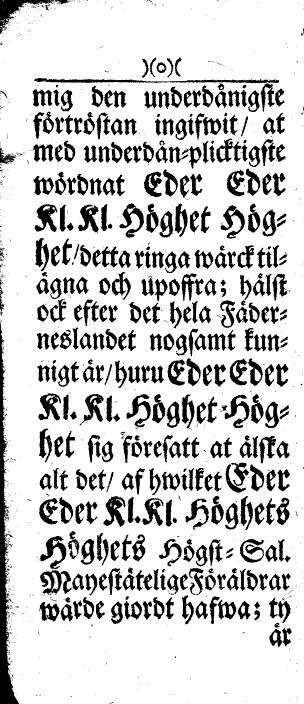 )(o)(
mig den underdånigste
förtröstan ingifwit/ at
med underdån-plicktigste
wördnat Eder Eder
Kl. Kl. Höghet Hög-
het/detta ringa wärck til-
ägna och upoffra; hälst
ock efter det hela Fäder-
neslandet nogsamt kun-
nigt är/huru Eder Eder
Kl. Kl. Höghet Hög-
het sig föresatt at älska
alt det/ af hwilket Eder
Eder Kl. Kl. Höghets
Höghets Högst-Sal.
Mayestätelige Föräldrar
wärde giordt hafwa; ty
är